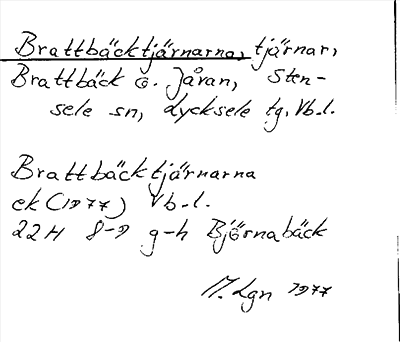 Brattbäcktjärnarna, tjärnar,
Brattbäck o. Jåran, Sten-
sele sn, Lycksele tg, Vb.l.
Brattbäcktjärnarna
ek (1977) Vb.l.
22H 8-9 g-h Björnabäck
M. Lgn 1977